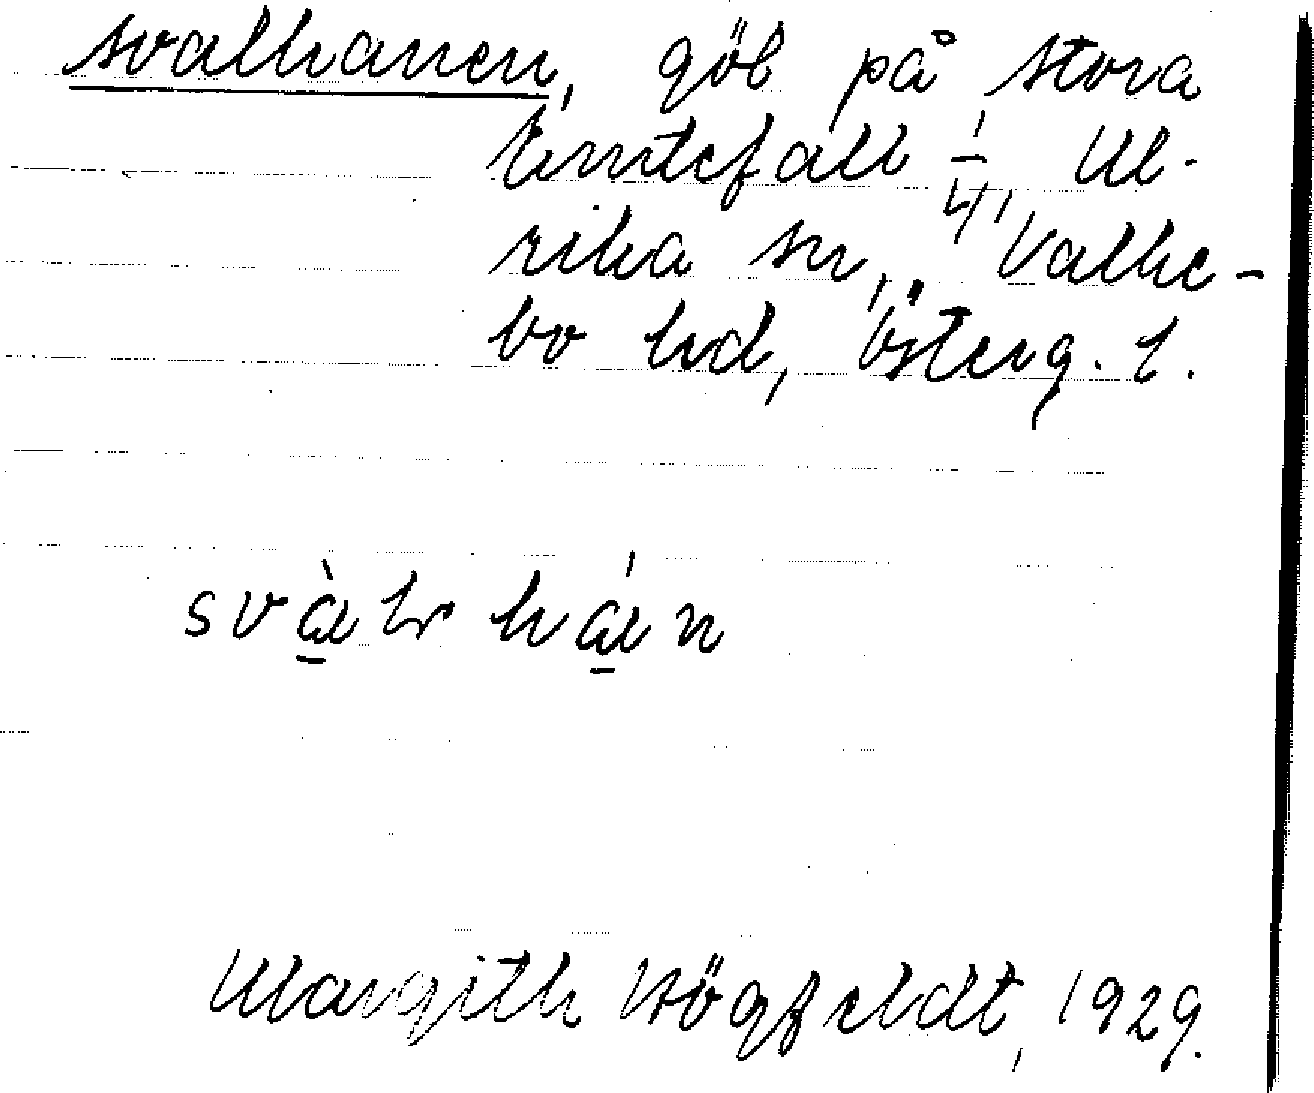 Svalhanen, göl på Stora
Emtefall 1/4, Ul-
rika sn, Valke-
bo hd, Österg. l.
svàlr hán
Margith Högfeldt, 1929.